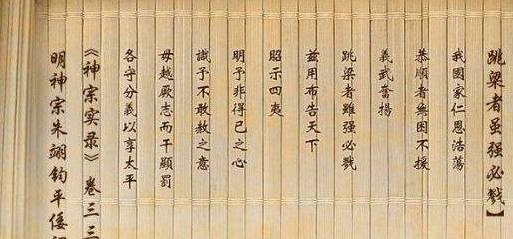 跳梁者虽强必戮】
我國家仁恩浩蕩
恭順者無困不援
義武奮揚
跳梁者雖强必戮
兹用布告天下
昭示四夷
明予非得已之心
識予不敢赦之意
毋越厥志而干顯罰
各守分義以享太平
《神宗实录》卷三三
明神宗朱翊钧平倭